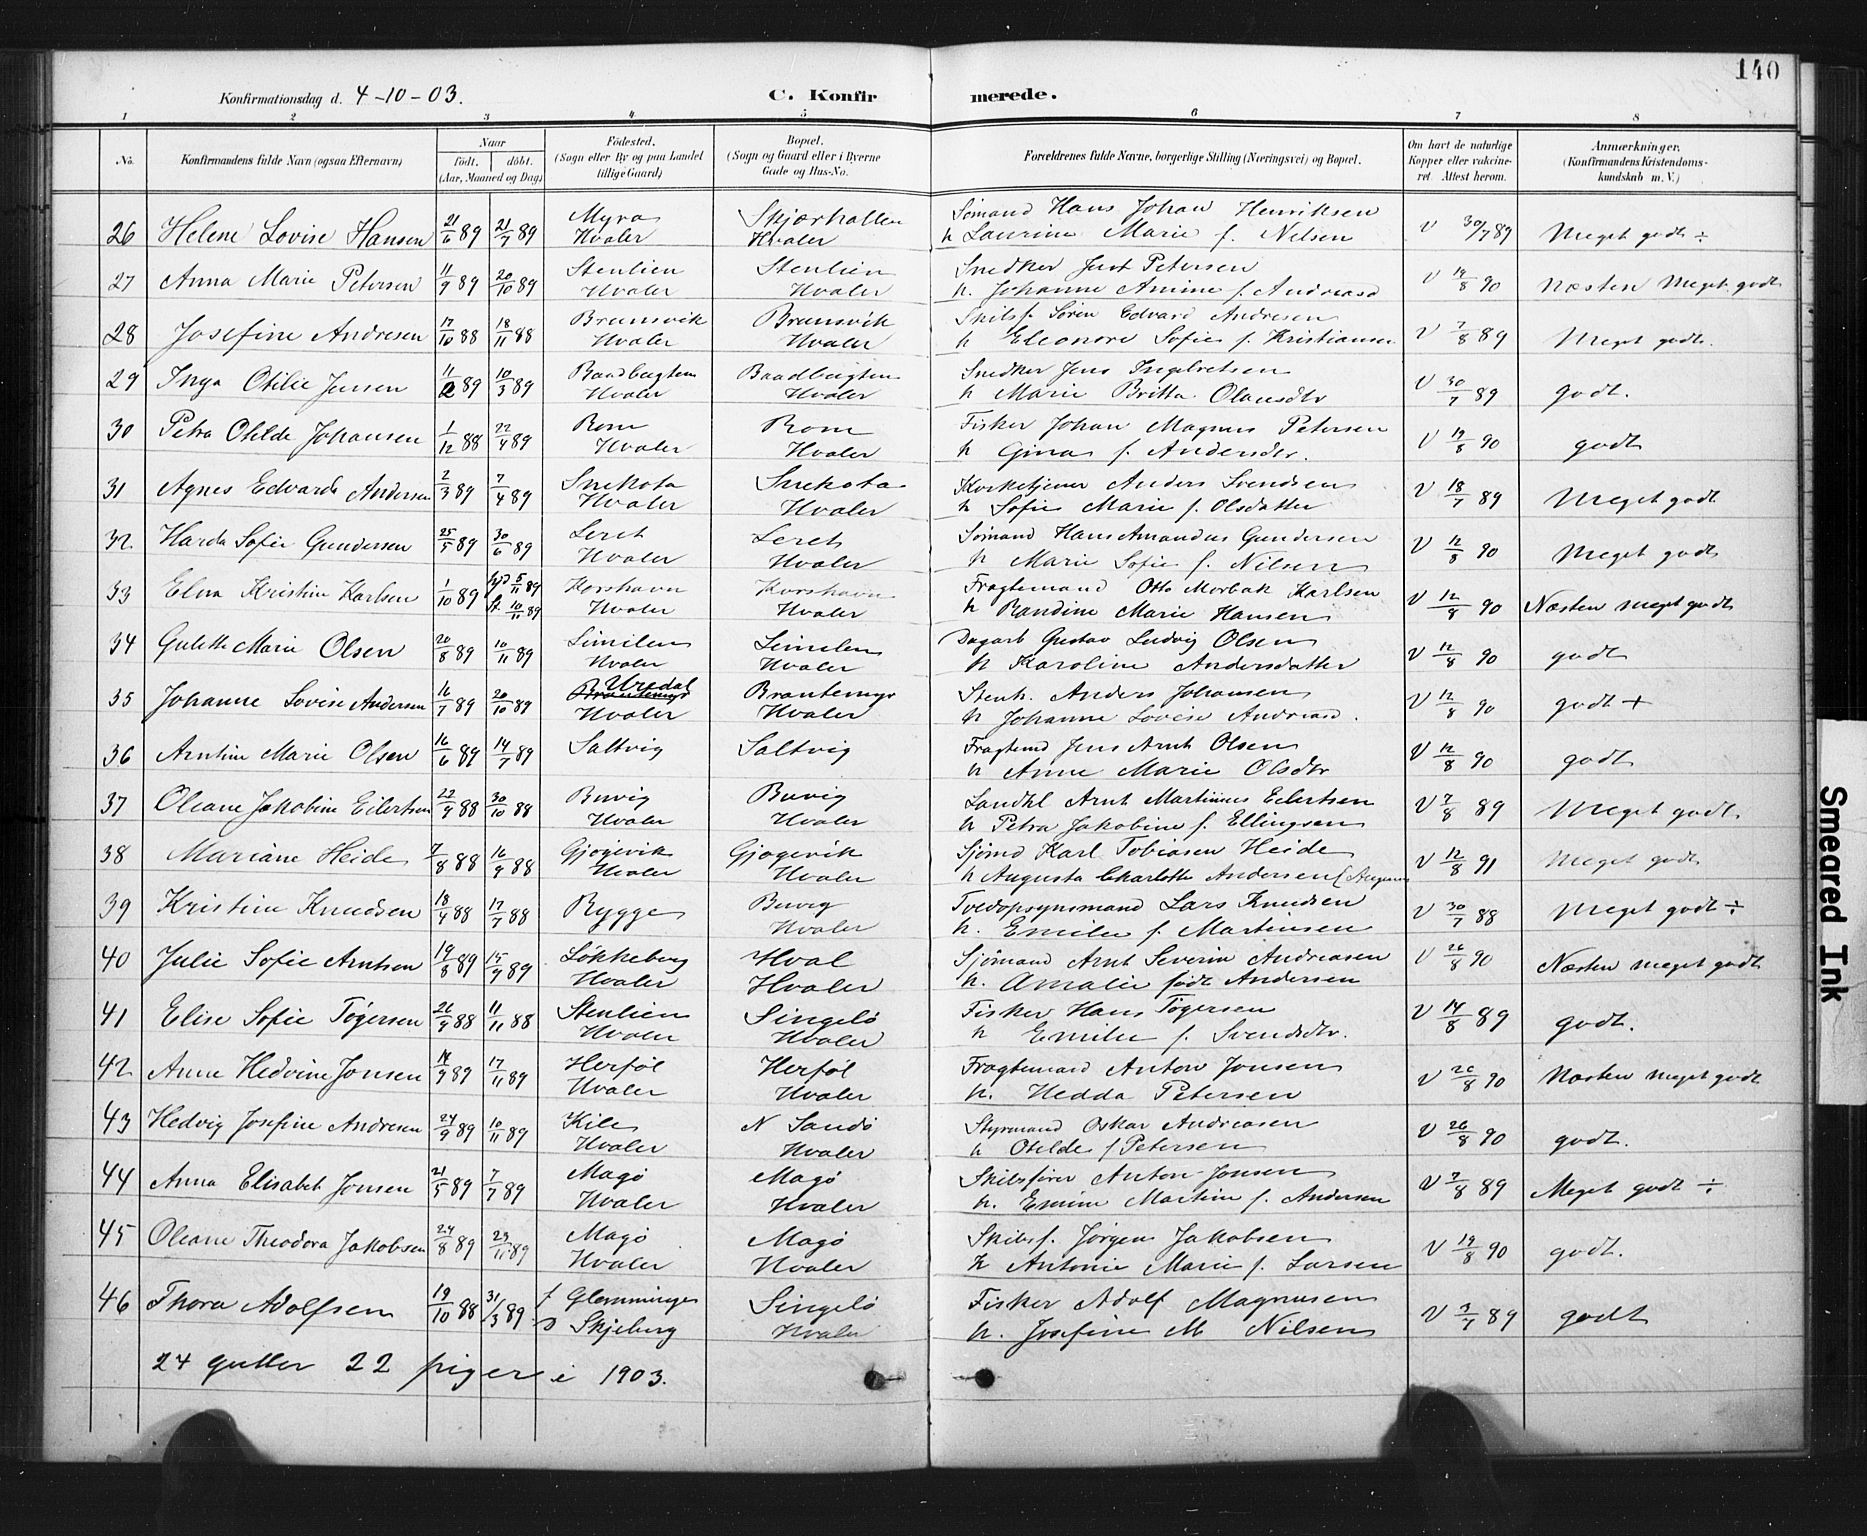 140
Konfirmationsdag d. 4-10-03.
C. Konfirmerede.
1 2 3 4 5 6 7 8
No.
Konfirmandens fulde Navn (ogsaa Efternavn)
Naar
født. døbt.
(Aar, Maaned og Dag)
Fødested.
(Sogn eller By og paa Landet
tillige Gaard)
Bopæl.
(Sogn og Gaard eller i Byerne
Gade og Hus-No.
Forældrenes fulde Navne, borgerlige Stilling (Næringsvei) og Bopæl.
Om havt de naturlige
Kopper eller vakcine-
ret. Attest herom.
Anmærkninger.
(Konfirmandens Kristendoms-
kundskab m. V.)
26 Helene Lovise Hansen 21/6 89 21/7 89 Myra Hvaler Skjærhallen Hvaler Sømand Hans Johan Henriksen
h Laurine Marie f. Nilsen V 30/7 89 Meget godt ÷
27 Anna Marie Petersen 11/9 89 20/10 89 Stenlien Hvaler Stenlien Hvaler Snedker Just Petersen
h. Johanne Amine f. Andreasd V 19/8 90 Næsten Meget godt
28 Josefine Andresen 17/10 88 18/11 88 Brunsvik Hvaler Brunsvik Hvaler Skibsf. Søren Edvard Andresen
h Eleonore Sofie f. Kristiansen V 7/8 89 Meget godt.
29 Inga Otilie Jensen 11/2 89 10/3 89 Baadbugten Hvaler Baadbugten Hvaler Snedker Jens Ingebretsen
h Marie Britta Olausdtr V 30/7 89 godt.
30 Petra Otilde Johansen 1/12 88 22/4 89 Rom Hvaler Rom Hvaler Fisker Johan Magnus Petersen
h Gina f. Andersdtr. V 19/8 90 godt
31 Agnes Edvarda Andersen 2/3 89 7/4 89 Snekota Hvaler Snekota Hvaler Kirketjener Anders Svendsen
h Sofie Marie f. Olsdatter V 18/7 89 Meget godt
32 Harda Sofie Gundersen 25/5 89 30/6 89 Leret Hvaler Leret Hvaler Sømand Hans Amandus Gundersen
h Marie Sofie f. Nilsen V 12/8 90 Meget godt
33 Elna Kristine Karlsen 1/10 89 hjd 5/11 89 St. 10/11 89 Korshavn Hvaler Korshavn Hvaler Fragtemand Otto Morbak Karlsen
h Randine Marie Hansen V 12/8 90 Næsten meget godt
34 Gulette Marie Olsen 20/8 89 10/11 89 Limilen Hvaler Limilen Hvaler Dagarb Gustav Ludvig Olsen
h Karoline Andersdatter V 12/8 90 godt
35 Johanne Lovise Andersen 16/7 89 20/10 89 Uredal Brantemyr Hvaler Brantemyr Hvaler Stenh. Anders Johansen
h Johanne Lovise Andreasd. V 12/8 90 godt +
36 Arntine Marie Olsen 16/6 89 14/7 89 Saltvig Saltvig Fragtemd Jens Arnt Olsen
h Anne Marie Olsdtr V 12/8 90 godt
37 Oleane Jakobine Eilertsen 22/9 88 30/10 88 Buvig Hvaler Buvig Hvaler Landhl Arnt Martinius Eilertsen
h Petra Jakobine f. Ellingsen V 7/8 89 Meget godt.
38 Mariane Heide 7/8 88 16/9 88 Gjøgevik Hvaler Gjøgevik Hvaler Sjømd Karl Tobiasen Heide
h Augusta Charlotte Andersen V 12/8 91 Meget godt
39 Kristine Knudsen 18/4 88 17/7 88 Rygge Buvig Hvaler Tvedopsynsmand Lars Knudsen
h. Emilie f. Martinsen V 30/7 88 Meget godt ÷
40 Julie Sofie Arntsen 19/8 89 15/9 89 Løkkeberg Hvaler Hval Hvaler Sjømand Arnt Severin Andreasen
h. Amalie født Andersen V 26/8 90 Næsten meget godt
41 Elise Sofie Tøgersen 26/9 88 11/11 88 Stenlien Hvaler Singelø Hvaler Fisker Hans Tøgersen
h Emilie f. Svendsdtr. V 14/8 89 godt.
42 Anne Hedvine Jonsen 14/9 89 17/11 89 Herføl Hvaler Herføl Hvaler Fragtemand Anton Jonsen
h. Hedda Petersen V 20/8 90 Næsten meget godt
43 Hedvig Josefine Andresen 24/9 89 10/11 89 Kile Hvaler N Sandø Hvaler Styrmand Oskar Andreasen
h Otilde f Petersen V 26/8 90 godt.
44 Anna Elisabet Jonsen 21/5 89 7/7 89 Magø Hvaler Magø Hvaler Skibsfører Anton Jonsen
h. Emine Martine f. Andersen V 7/8 89 Meget godt ÷
45 Oleane Theodora Jakobsen 24/8 89 23/11 89 Magø Hvaler Magø Hvaler Skibsf. Jørgen Jakobsen
h Antonie Marie f. Larsen V 19/8 90 godt.
46 Thora Adolfsen 19/10 88 31/3 89 f Glemminge D Skjeberg Singelø Hvaler Fisker Adolf Magnusen
h. Josefine M Nilsen V 3/7 89 godt
24 gutter 22 piger i 1903.
Smeared Ink